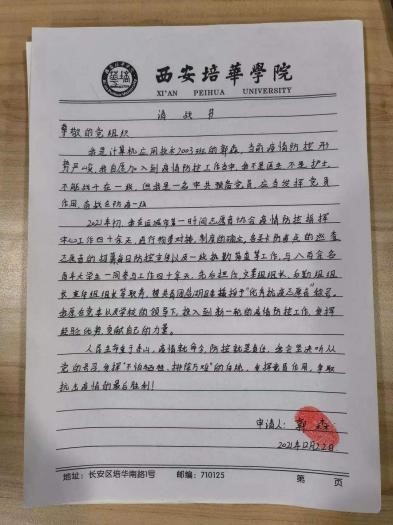 西安培華學院
XI'AN PEIHUA UNIVERSITY
请战书
尊敬的党组织
我是计算机应用技术2003班的郭森,当前疫情防控形
势严峻,我自愿加入到疫情防控工作当中,我不是医生,不是护士,
不能战斗在一线,但我是一名中共预备党员,应当发挥党员
作用,奋战在防疫一线
2021年初,我在运城市第一时间志愿者协会疫情防控指挥
中心工作四十余天,进行物资对接,制度的确立,各卡点的巡查
志愿者的招募每日防控
百年大学生一同参与工作四十余天,先后担任文案组组长,后勤组组
长,宣传组组长等职务,被共青团盐湖区委授予"优秀抗疫志愿者"称号。
我愿在党委以及学校的领导下,投入到新一轮的疫情防控工作,发挥
经验优势,贡献自己的力量。
人民生命重于泰山,疫情就是命令,防控就是责任,我会坚决听从
党的号召,发挥"不怕牺牲、排除万难"的自绝,发挥党员作用,争取
抗击疫情的最后胜利!
申请人:郭森
2021年12月22日
地址:长安区培华南路1号 邮编:710125 第 页